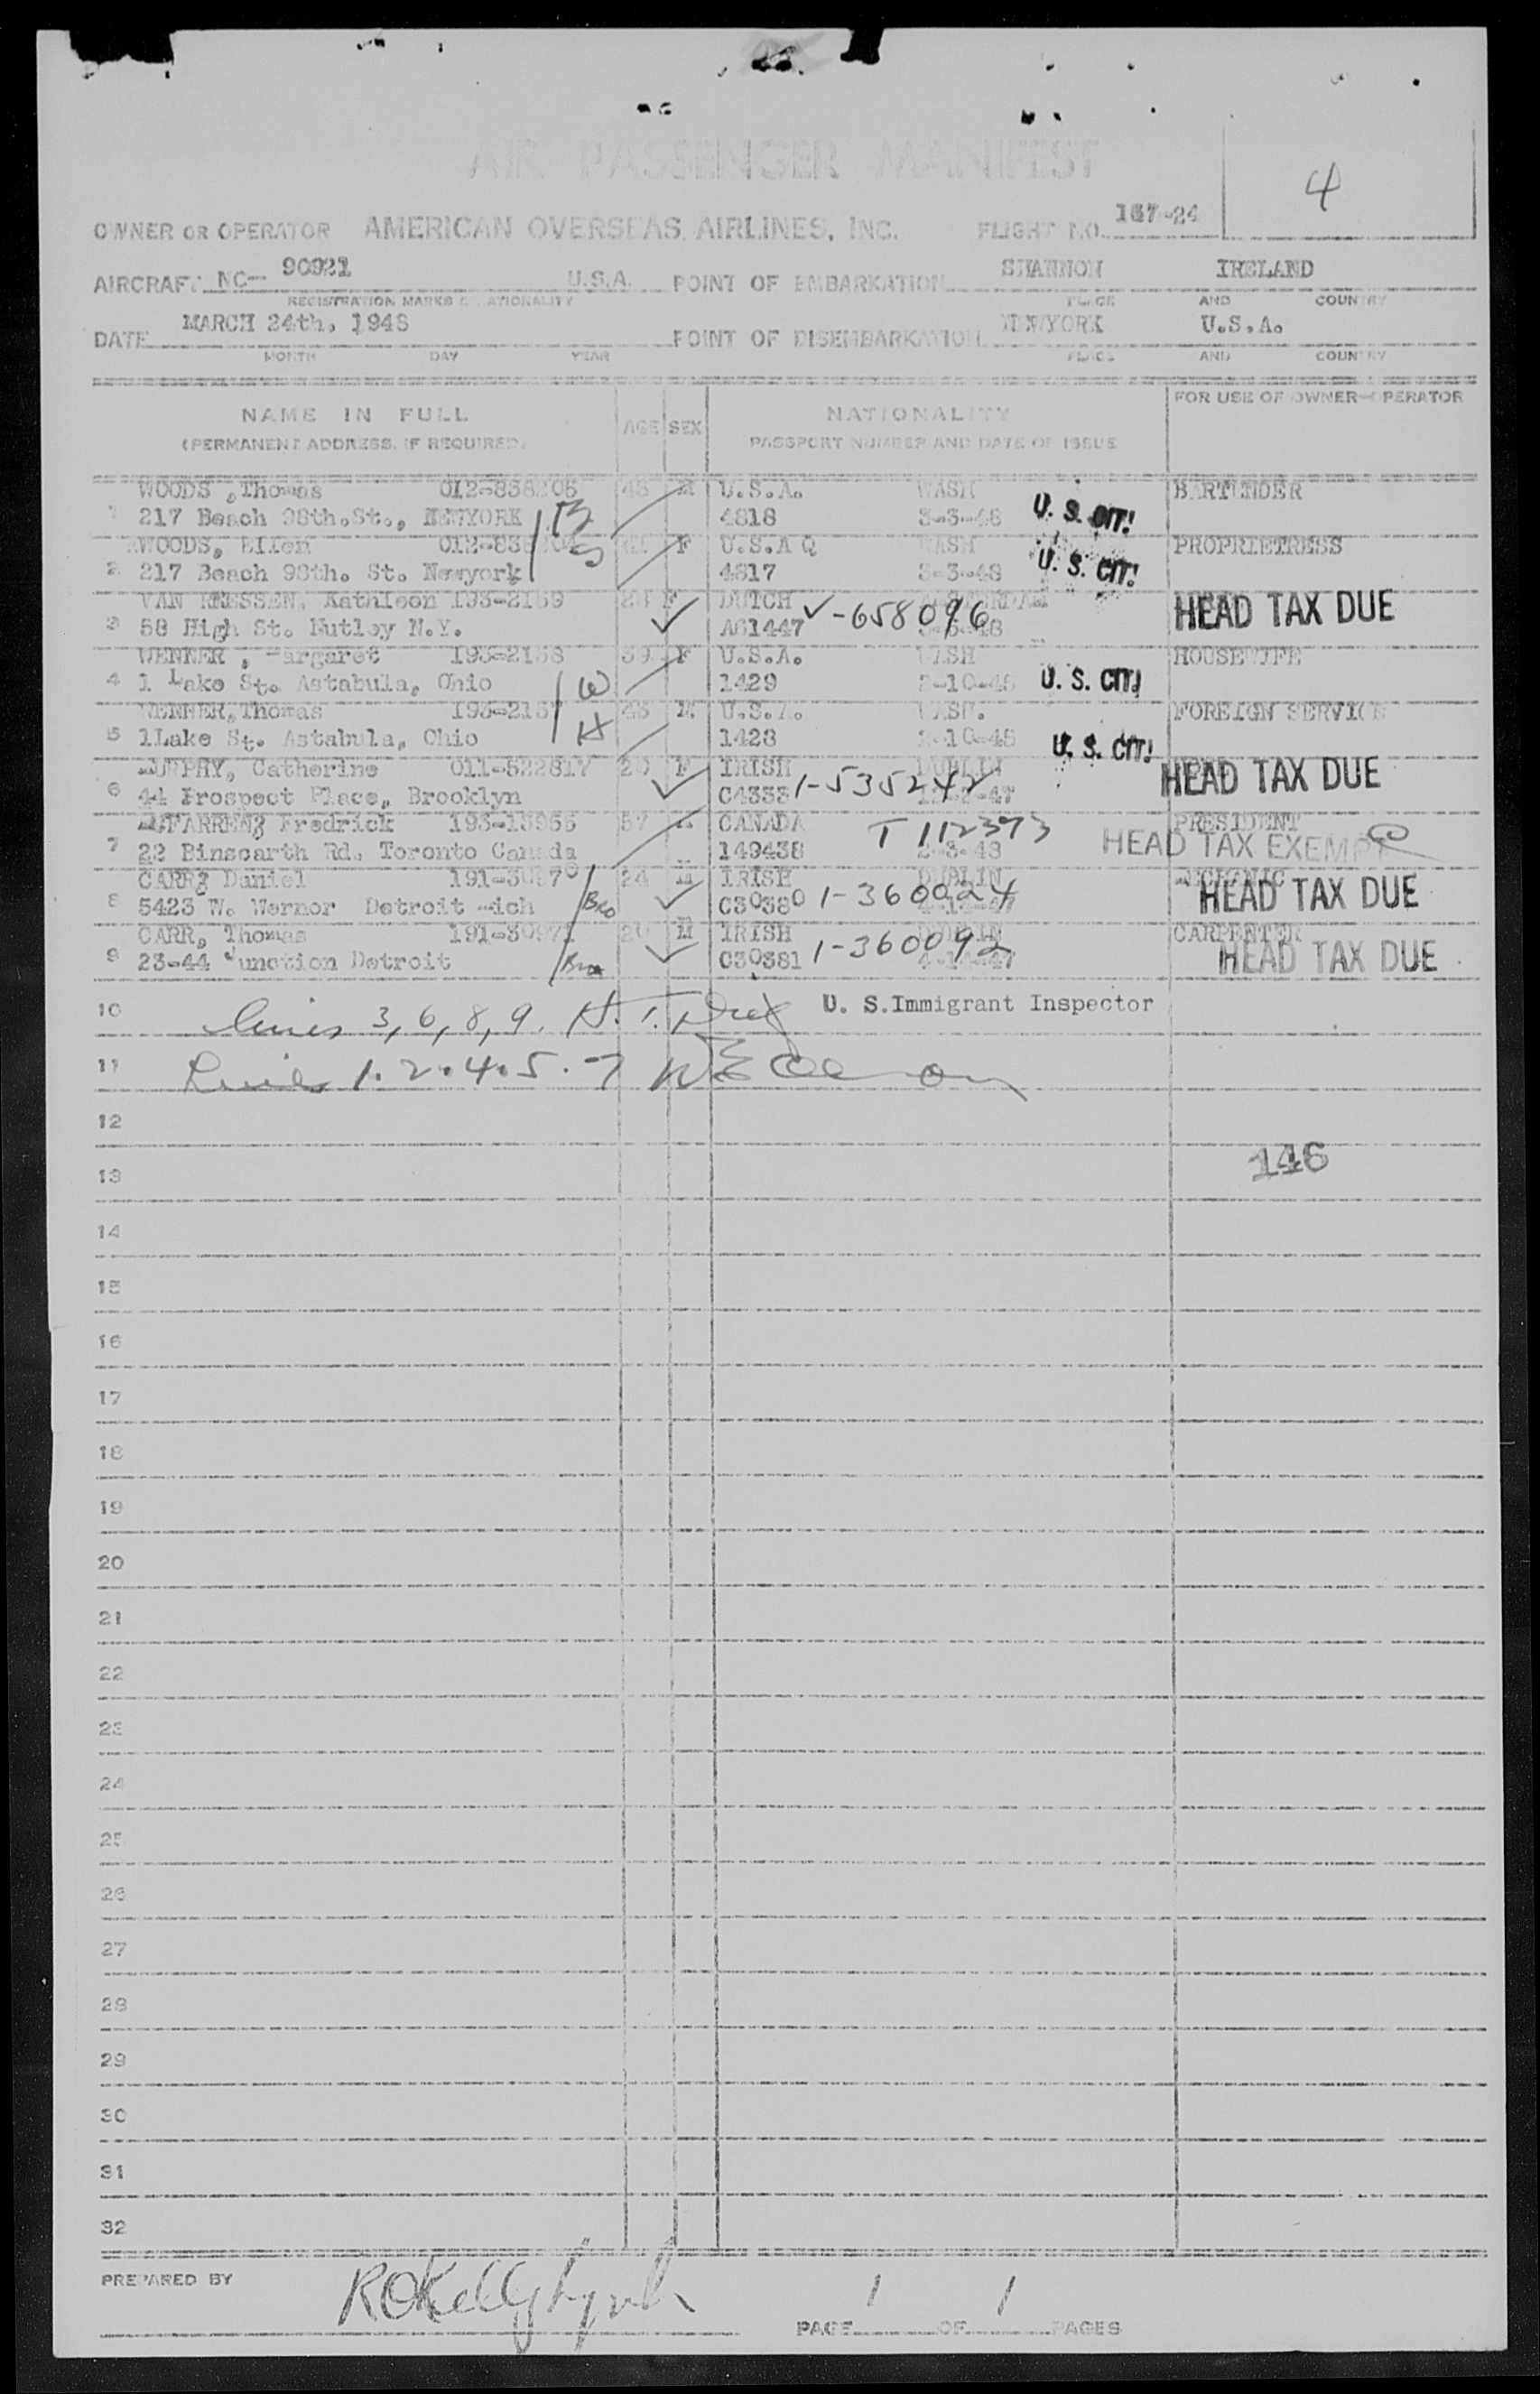 4
AIR PASSENGER MANIFEST
OWNER OR OPERATOR AMERICAN OVERSEAS AIRLINES, INC. FLIGHT NO. 167-24
AIRCRAFT NC- 90921 U.S.A. POINT OF EMBARKATION SHANNON IRELAND
REGISTRATION MARKS & NATIONALITY PLACE AND COUNTRY
DATE MARCH 24th, 1948 POINT OF DISEMBARKATION NEWYORK U.S.A.
MONTH DAY YEAR PLACE AND COUNTRY
NAME IN FULL AGE SEX NATIONALITY FOR USE OF OWNER-OPERATOR
(PERMANENT ADDRESS, IF REQUIRED) PASSPORT NUMBER AND DATE OF ISSUE
WOODS ,Thomas M U.S.A. WASH BARTENDER
1 217 Beach 98th.St., NEWYORK 4818 3-3-48 U. S. CIT!
WOODS, Ellen F U.S.A Q WASH PROPRIETRESS
2 217 Beach 98th. St. Newyork 4817 3-3-48 U. S. CIT!
VAN Kathleen 193-2159 F DUTCH
3 58 High St. Nutley N.Y. 1447 -658096 HEAD TAX DUE
WENNER , Margaret 193-2158 39 F U.S.A. WASH HOUSEWIFE
4 1 Lake St. Astabula, Ohio W 1429 2-10-48 U. S. CIT!
WENNER,Thomas M U.S.A. WASH. FOREIGN SERVICE
5 1Lake St. Astabula, Ohio H 1428 2-10-48 U. S. CIT!
MURPHY, Catherine 011-522817 20 F IRISH DUBLIN
6 44 Prospect Place, Brooklyn C4333 1-535242 HEAD TAX DUE
Fredrick 57 M CANADA T 112373 PRESIDENT
7 22 Binscarth Rd. Toronto Canada 149438 2-3-48 HEAD TAX EXEMPT
CARR, Daniel 24 M IRISH DUBLIN MECHANIC
8 5423 W. Wernor Detroit Mich Bro C30380 1-360924 HEAD TAX DUE
CARR, Thomas 191-30971 20 M IRISH DUBLIN CARPENTER
9 23-44 Junction Detroit Bro C30381 1-360092 HEAD TAX DUE
10 Lines 3, 6, 8, 9. U. S.Immigrant Inspector
11 Lines 1. 2. 4. 5. 7
12
13 146
14
15
16
17
18
19
20
21
22
23
24
25
26
27
28
29
30
31
32
PREPARED BY PAGE 1 OF 1 PAGES